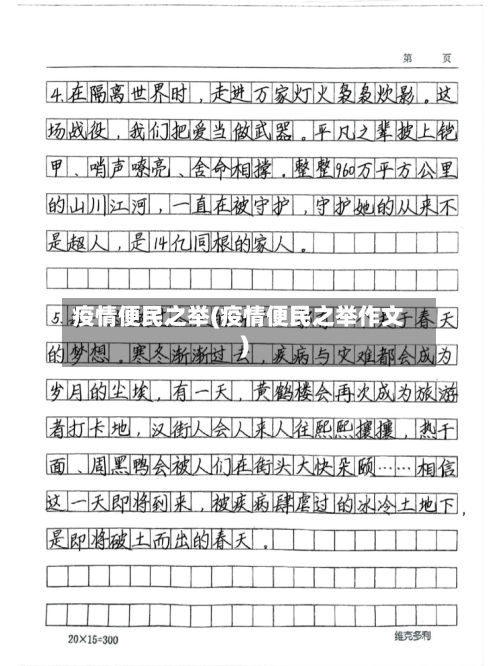 第 页
4.在隔离世界时，走进万家灯火袅袅炊影。这
场战役，我们把爱当做武器。平凡之辈披上铠
甲、哨声嘹亮、舍命相撑。整整960万平方公里
的山川江河，一直在被守护，守护她的从来不
是超人，是14亿同根的家人。
5.
疫情便民之举(疫情便民之举作文
)
于春天
的梦想。寒冬渐渐过去，疾病与灾难都会成为
岁月的尘埃，有一天，黄鹤楼会再次成为旅游
者打卡地，汉街人会人来人往熙熙攘攘，热干
面、周黑鸭会被人们在街头大快朵颐……相信
这一天即将到来，被疾病肆虐过的冰冷土地下，
是即将破土而出的春天。
20×15=300
维克多利